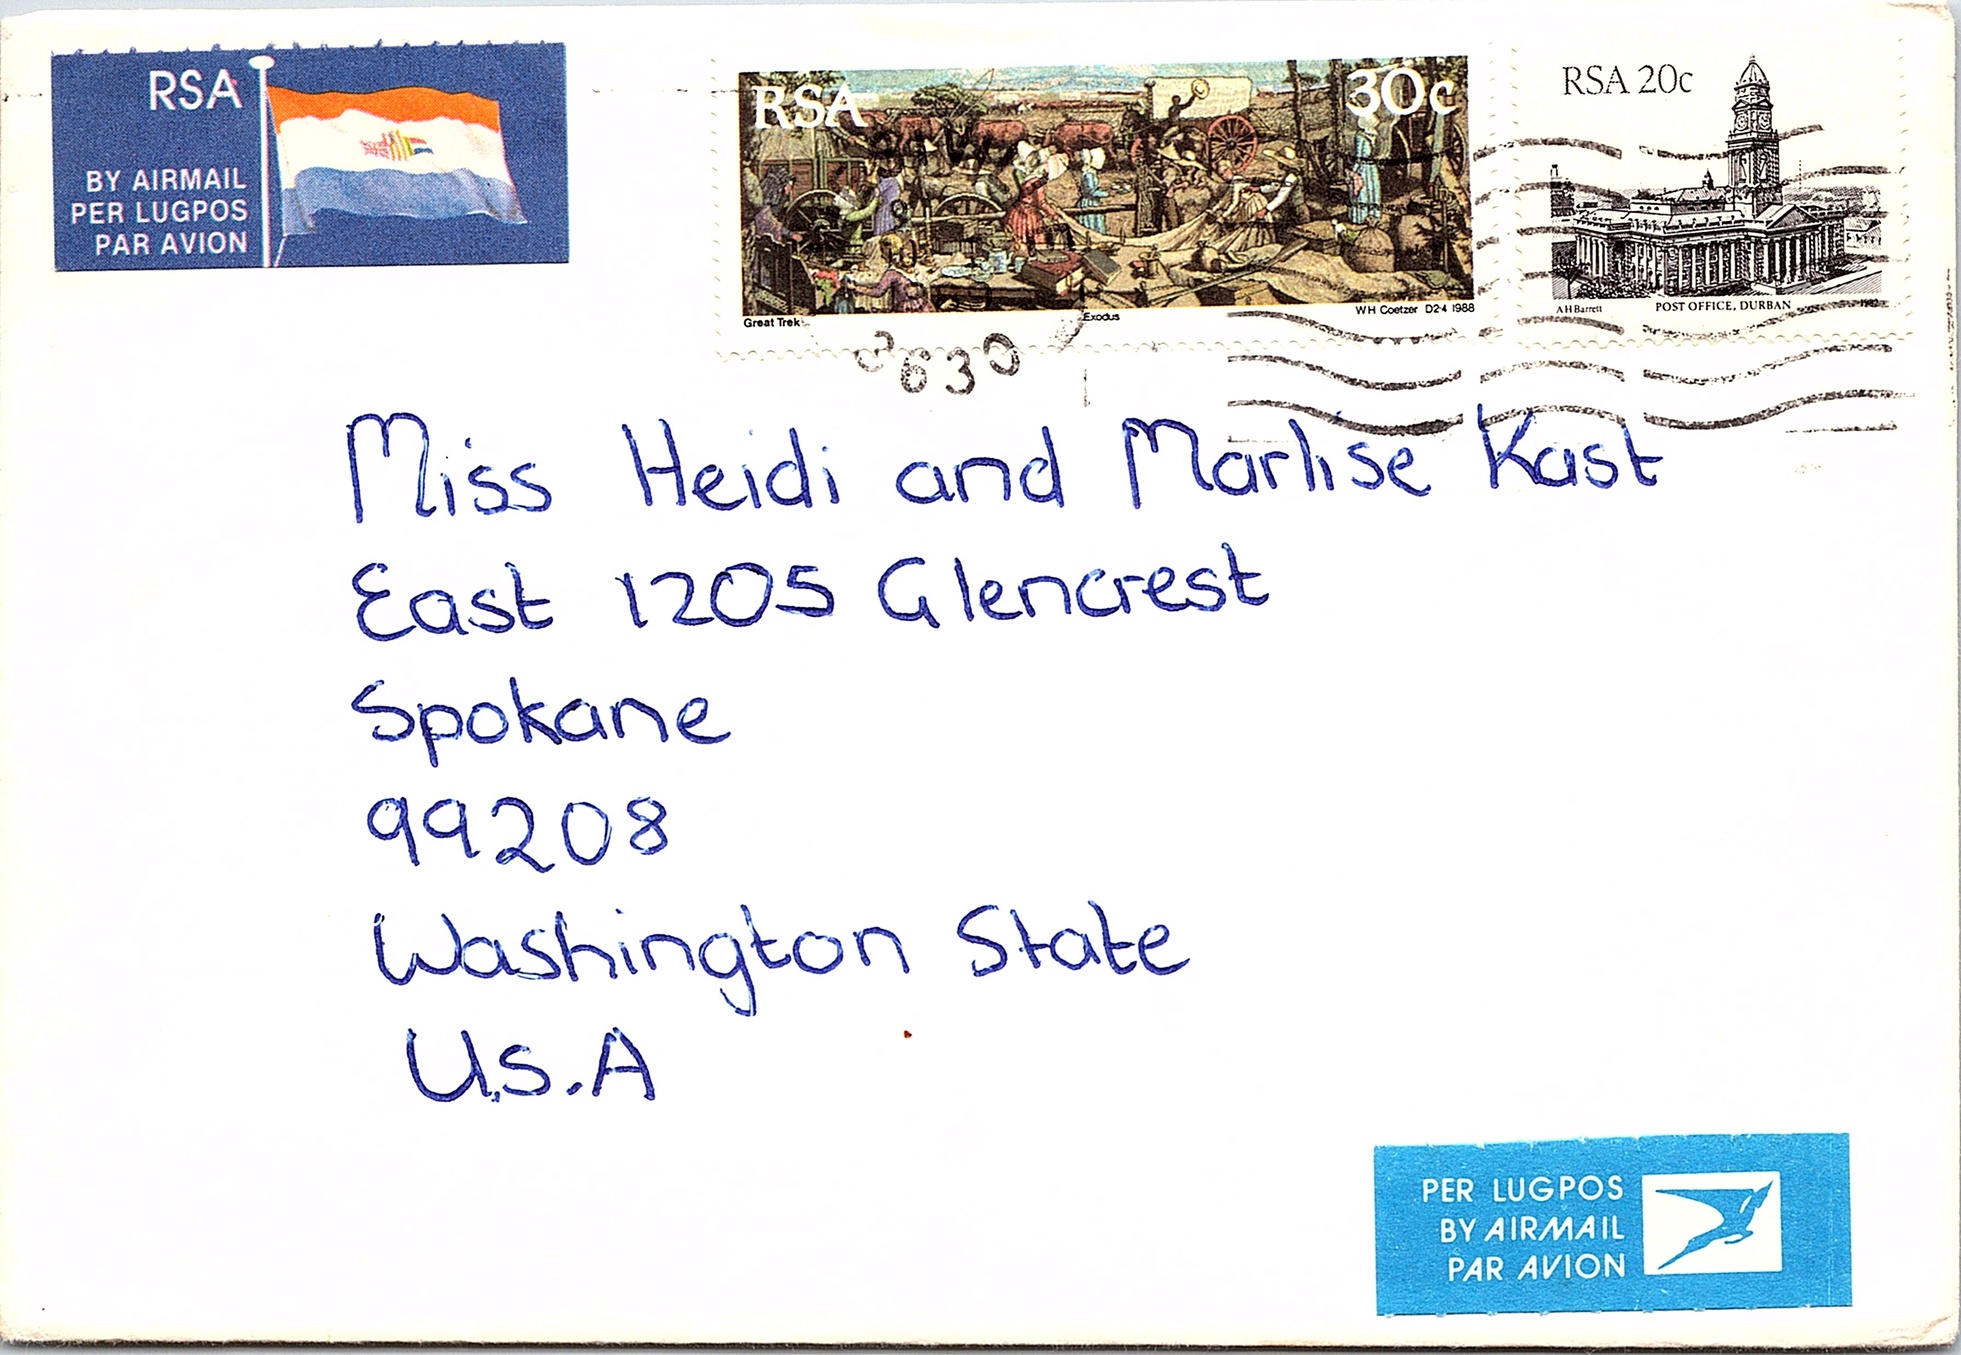 RSA
BY AIRMAIL
PER LUGPOS
PAR AVION
RSA 30c
Great Trek Exodus WH Coetzer D2·4 1988
RSA 20c
AH Barrett POST OFFICE, DURBAN 1982
3630
Miss Heidi and Marlise Kast
East 1205 Glencrest
Spokane
99208
Washington State
U.S.A
PER LUGPOS
BY AIRMAIL
PAR AVION